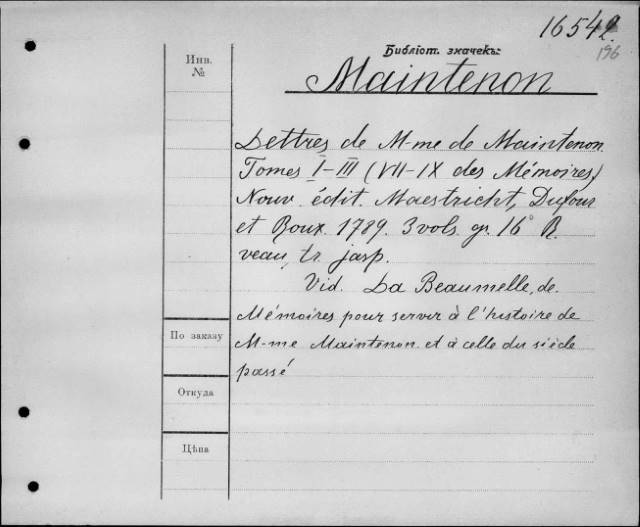 16542.
196
Библіот. значекъ:
Инв.
№
Maintenon
Lettres de M-me de Maintenon
Tomes I-III (VII-IX des Mémoires)
Nouv. édit. Maestricht, Dufour
et Roux. 1789. 3 vols. gr. 16° R.
veau, tr. jasp.
Vid. La Beaumelle, de.
Mémoires pour servir à l'histoire de
M-me Maintenon et à celle du siècle
passé
По заказу
Откуда
Цѣна